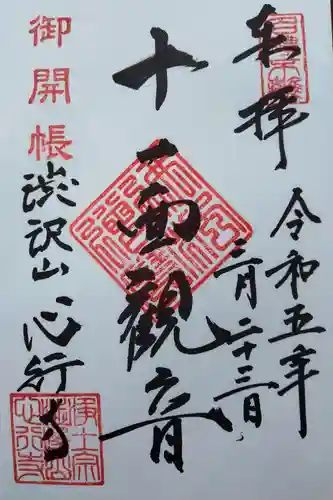 奉拝
令和五年
三月二十三日
十一面観音
御開帳
渋沢山 心行寺